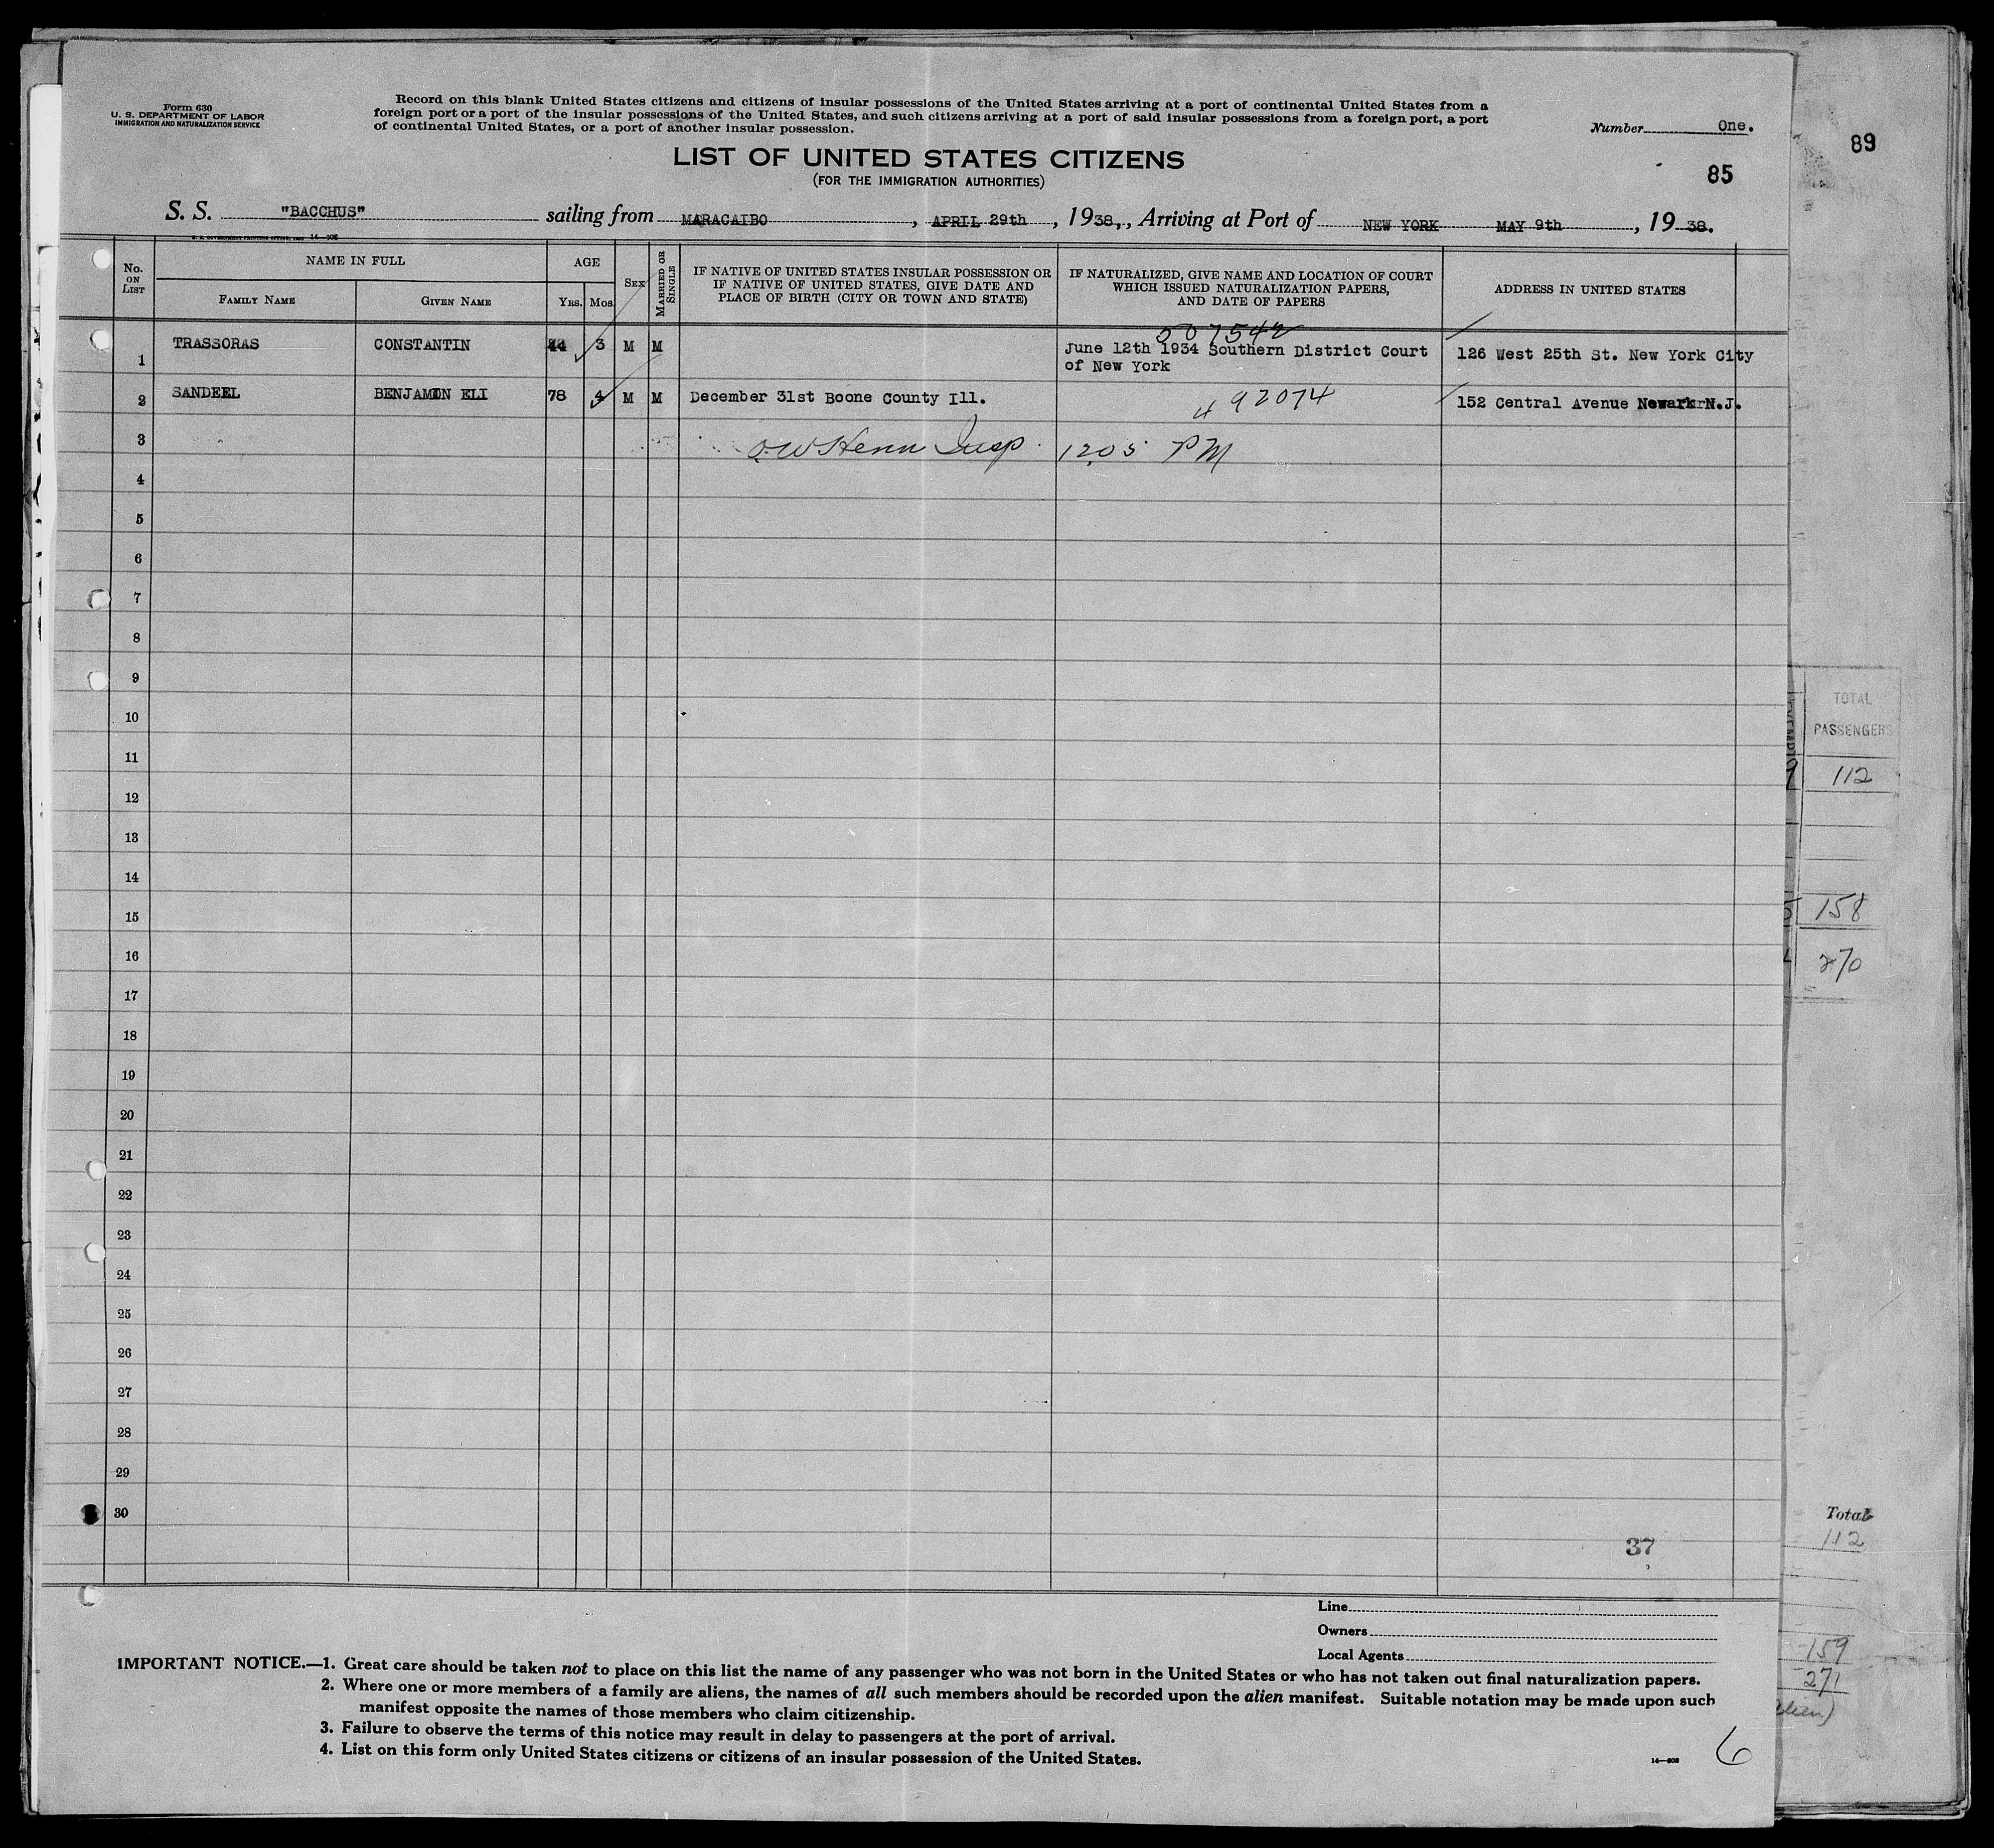 Form 630
U. S. DEPARTMENT OF LABOR
IMMIGRATION AND NATURALIZATION SERVICE
Record on this blank United States citizens and citizens of insular possessions of the United States arriving at a port of continental United States from a
foreign port or a port of the insular possessions of the United States, and such citizens arriving at a port of said insular possessions from a foreign port, a port
of continental United States, or a port of another insular possession.
Number One.
89
LIST OF UNITED STATES CITIZENS
(FOR THE IMMIGRATION AUTHORITIES)
85
S. S. "BACCHUS" sailing from MARACAIBO, APRIL 29th, 1938., Arriving at Port of NEW YORK MAY 9th, 1938.
No. ON LIST
NAME IN FULL
FAMILY NAME
GIVEN NAME
AGE
YRS.
MOS.
SEX
MARRIED OR SINGLE
IF NATIVE OF UNITED STATES INSULAR POSSESSION OR
IF NATIVE OF UNITED STATES, GIVE DATE AND
PLACE OF BIRTH (CITY OR TOWN AND STATE)
IF NATURALIZED, GIVE NAME AND LOCATION OF COURT
WHICH ISSUED NATURALIZATION PAPERS,
AND DATE OF PAPERS
ADDRESS IN UNITED STATES
507542
1 TRASSORAS CONSTANTIN 44 3 M M June 12th 1934 Southern District Court 126 West 25th St. New York City
of New York
2 SANDEEL BENJAMIN ELI 78 4 M M December 31st Boone County Ill. 492074 152 Central Avenue Newark N.J.
3 Insp. 1205 PM
4
5
6
7
8
9
10
11
12
13
14
15
16
17
18
19
20
21
22
23
24
25
26
27
28
29
30
37
TOTAL
PASSENGERS
112
158
270
Total
112
159
271
Line
Owners
Local Agents
IMPORTANT NOTICE.—1. Great care should be taken not to place on this list the name of any passenger who was not born in the United States or who has not taken out final naturalization papers.
2. Where one or more members of a family are aliens, the names of all such members should be recorded upon the alien manifest. Suitable notation may be made upon such
manifest opposite the names of those members who claim citizenship.
3. Failure to observe the terms of this notice may result in delay to passengers at the port of arrival.
4. List on this form only United States citizens or citizens of an insular possession of the United States.
6